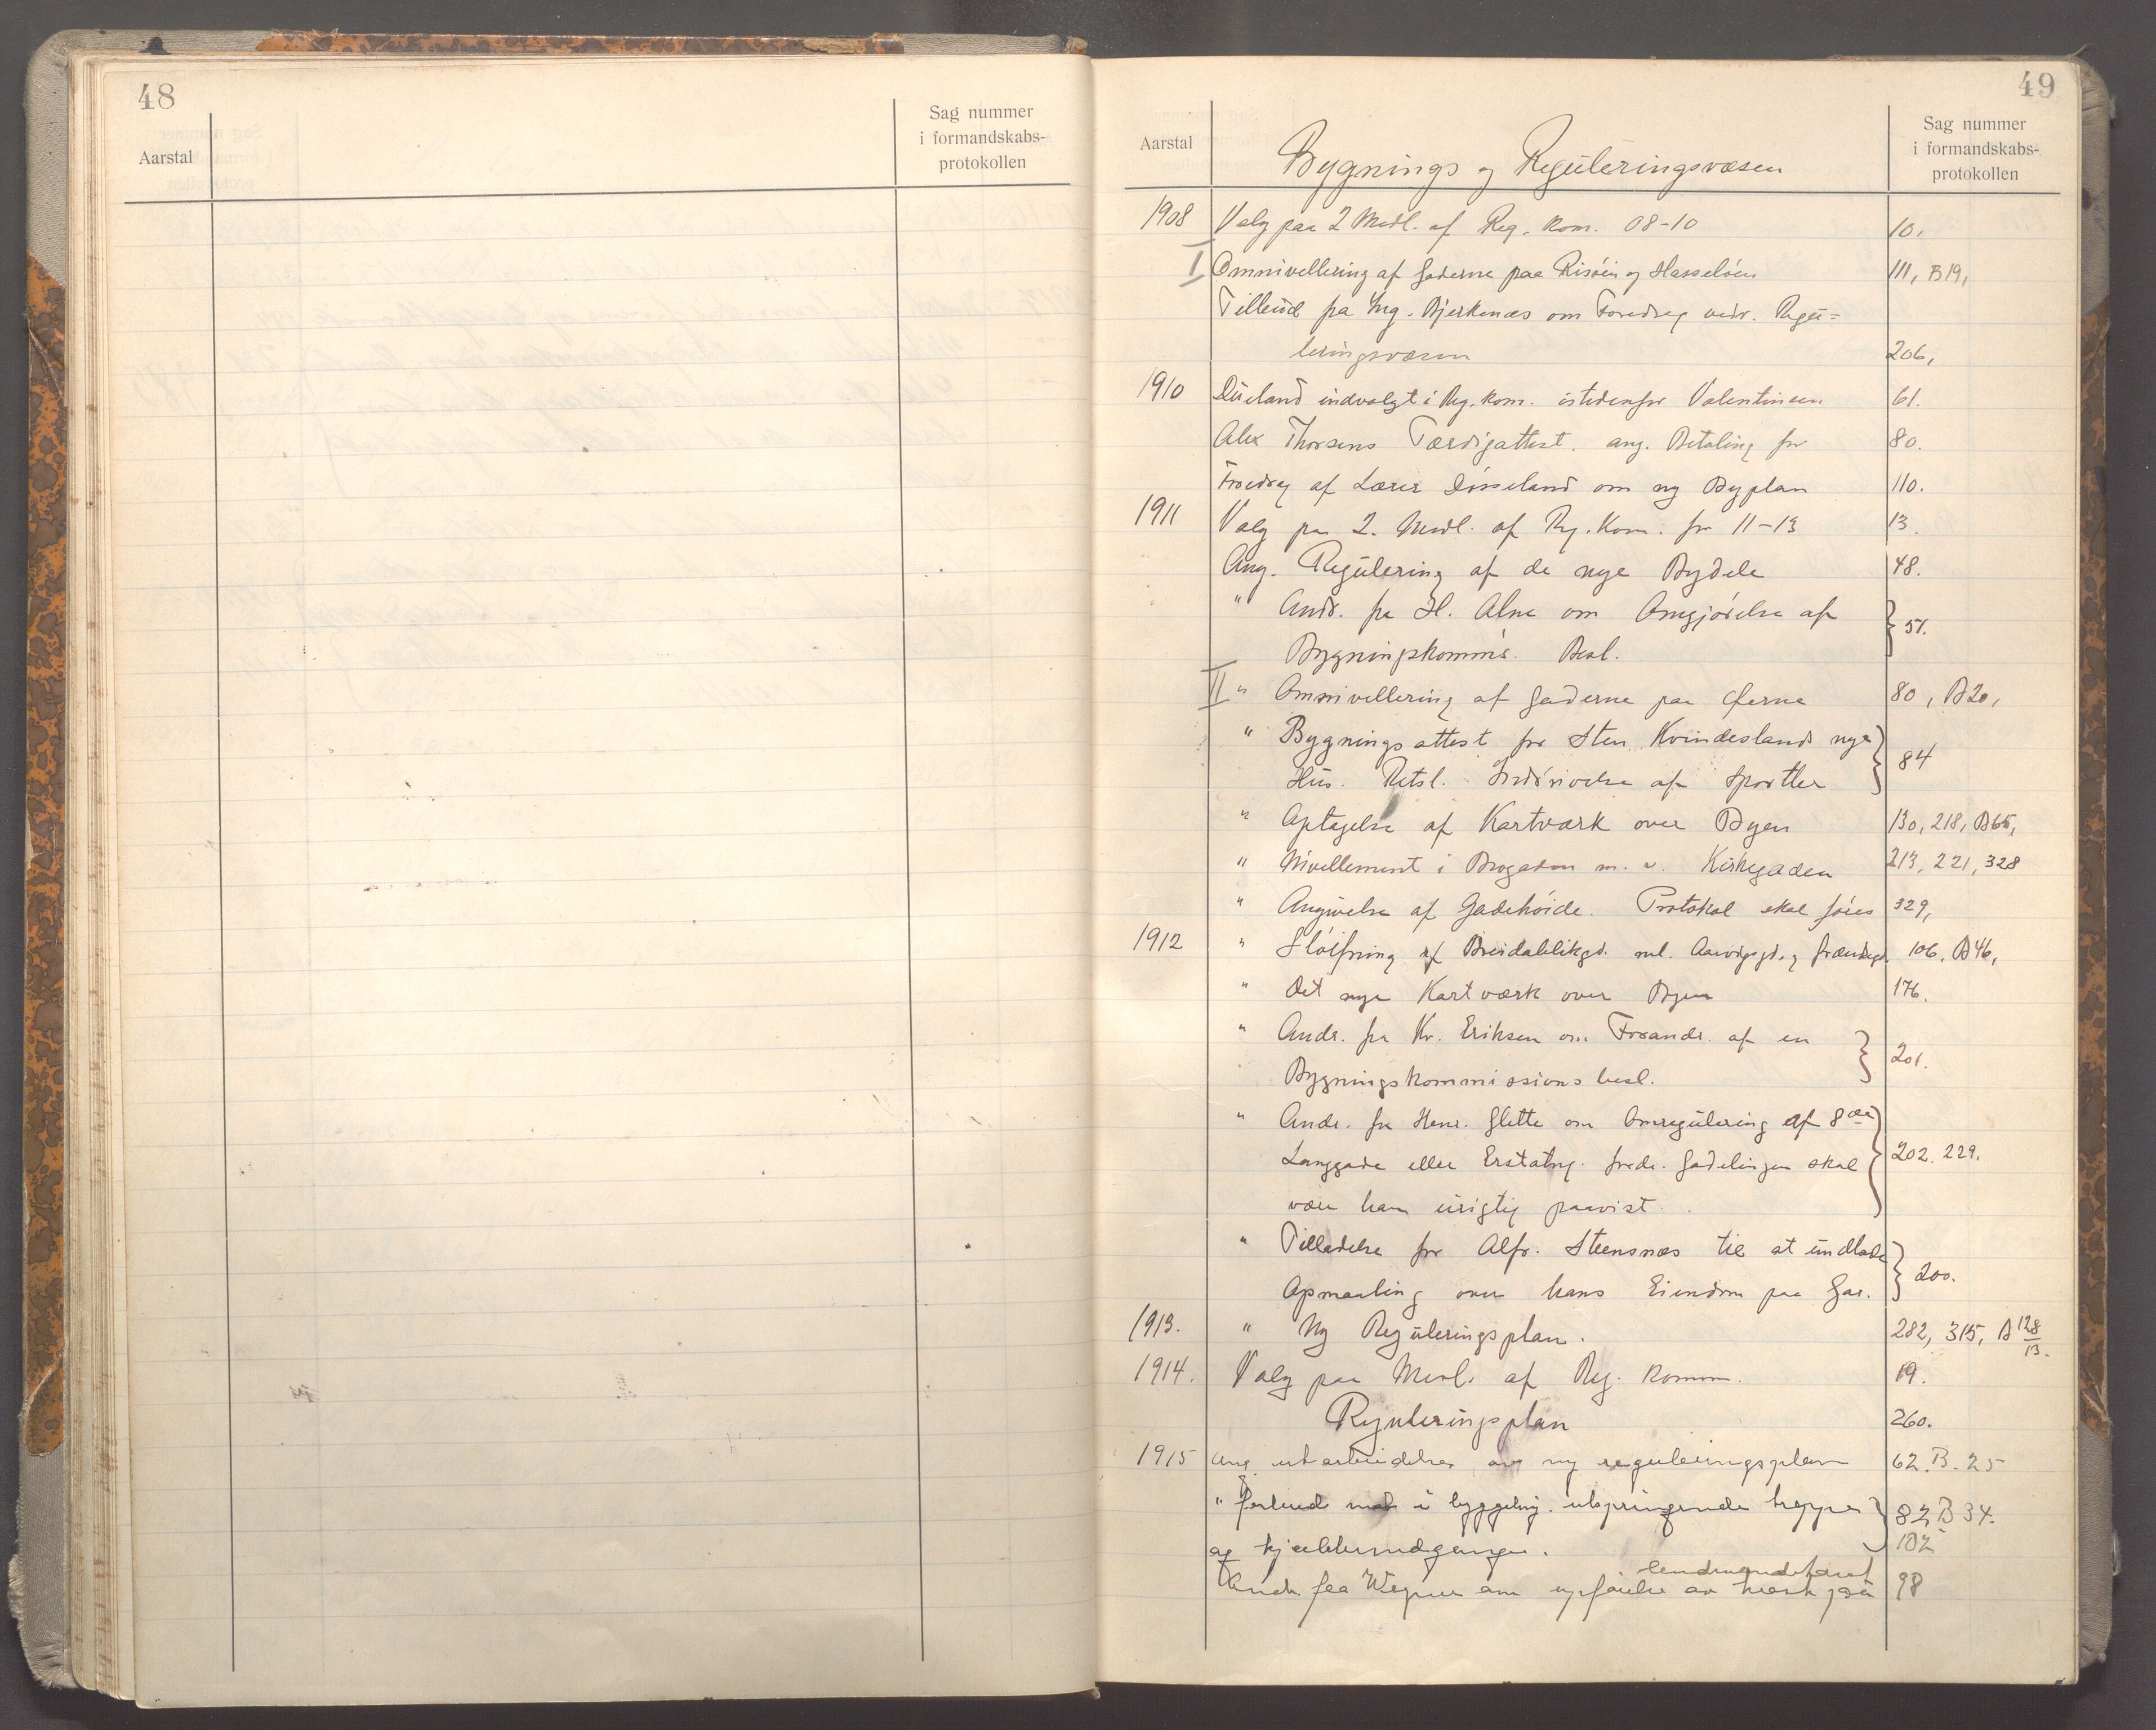 48
Aarstal
Sag nummer
i formandskabs-
protokollen
49
Aarstal
Bygnings og Reguleringsvæsen
Sag nummer
i formandskabs-
protokollen
1908 Valg paa 2 Medl. af Reg. Kom. 08-10 10.
I Omnivellering af Gaderne paa Risøen og Hasseløen 111, B19,
Tilbud fra Ing. Bjerknæs om Foredrag vedr. Regu-
leringsvæsen 206,
1910 Dueland indvalgt i Reg. kom. istedenfor Valentinsen 61.
Alex Thorsens Færdigattest. ang. Betaling for 80.
Foredrag af Lærer Døsseland om ny Byplan 110.
1911 Valg paa 2. Medl. af Reg. Kom. for 11-13 13.
Ang. Regulering af de nye Bydele 48.
" Andr. fra H. Alne om Omgjørelse af
Bygningskommis. Besl. 51.
II " Omnivellering af Gaderne paa Øerne 80, B20,
" Bygningsattest for Sten Kvindeslands nye
Hus. Retsl. Inddrivelse af Sportler 84
" Optagelse af Kartværk over Byen 130, 218, B65,
" Nivellement i Brogaden m. v. Kirkegaden 213, 221, 328
" Angivelse af Gadehøide. Protokol skal føres 329,
1912 " Sløifning af Breidablikgd. ml. 106, B46,
" Det nye Kartværk over Byen 176.
" Andr. fra Kr. Eriksen om Forandr. af en
Bygningskommissions besl. 201.
" Andr. fra Henr. Slette om Omregulering af 8de
Langgade eller Erstatng. fordi Gadelinjen skal 202. 229.
være ham urigtig paavist.
" Tilladelse for Alfr. Steensnæs til at undlade
Opmaaling over hans Eiendom paa Gar. 200.
1913. " Ny Reguleringsplan. 282, 315, B 128/13.
1914. Valg paa Medl. af Reg. Komm. 19.
Reguleringsplan 260.
1915 Ang. utarbeidelse av ny reguleringsplan 62. B. 25
" forbud mot i byggelinj. utspringende trapper 82 B 34.
og kjeldernedgange. 102
Andr. fra om opførelse av paa 98